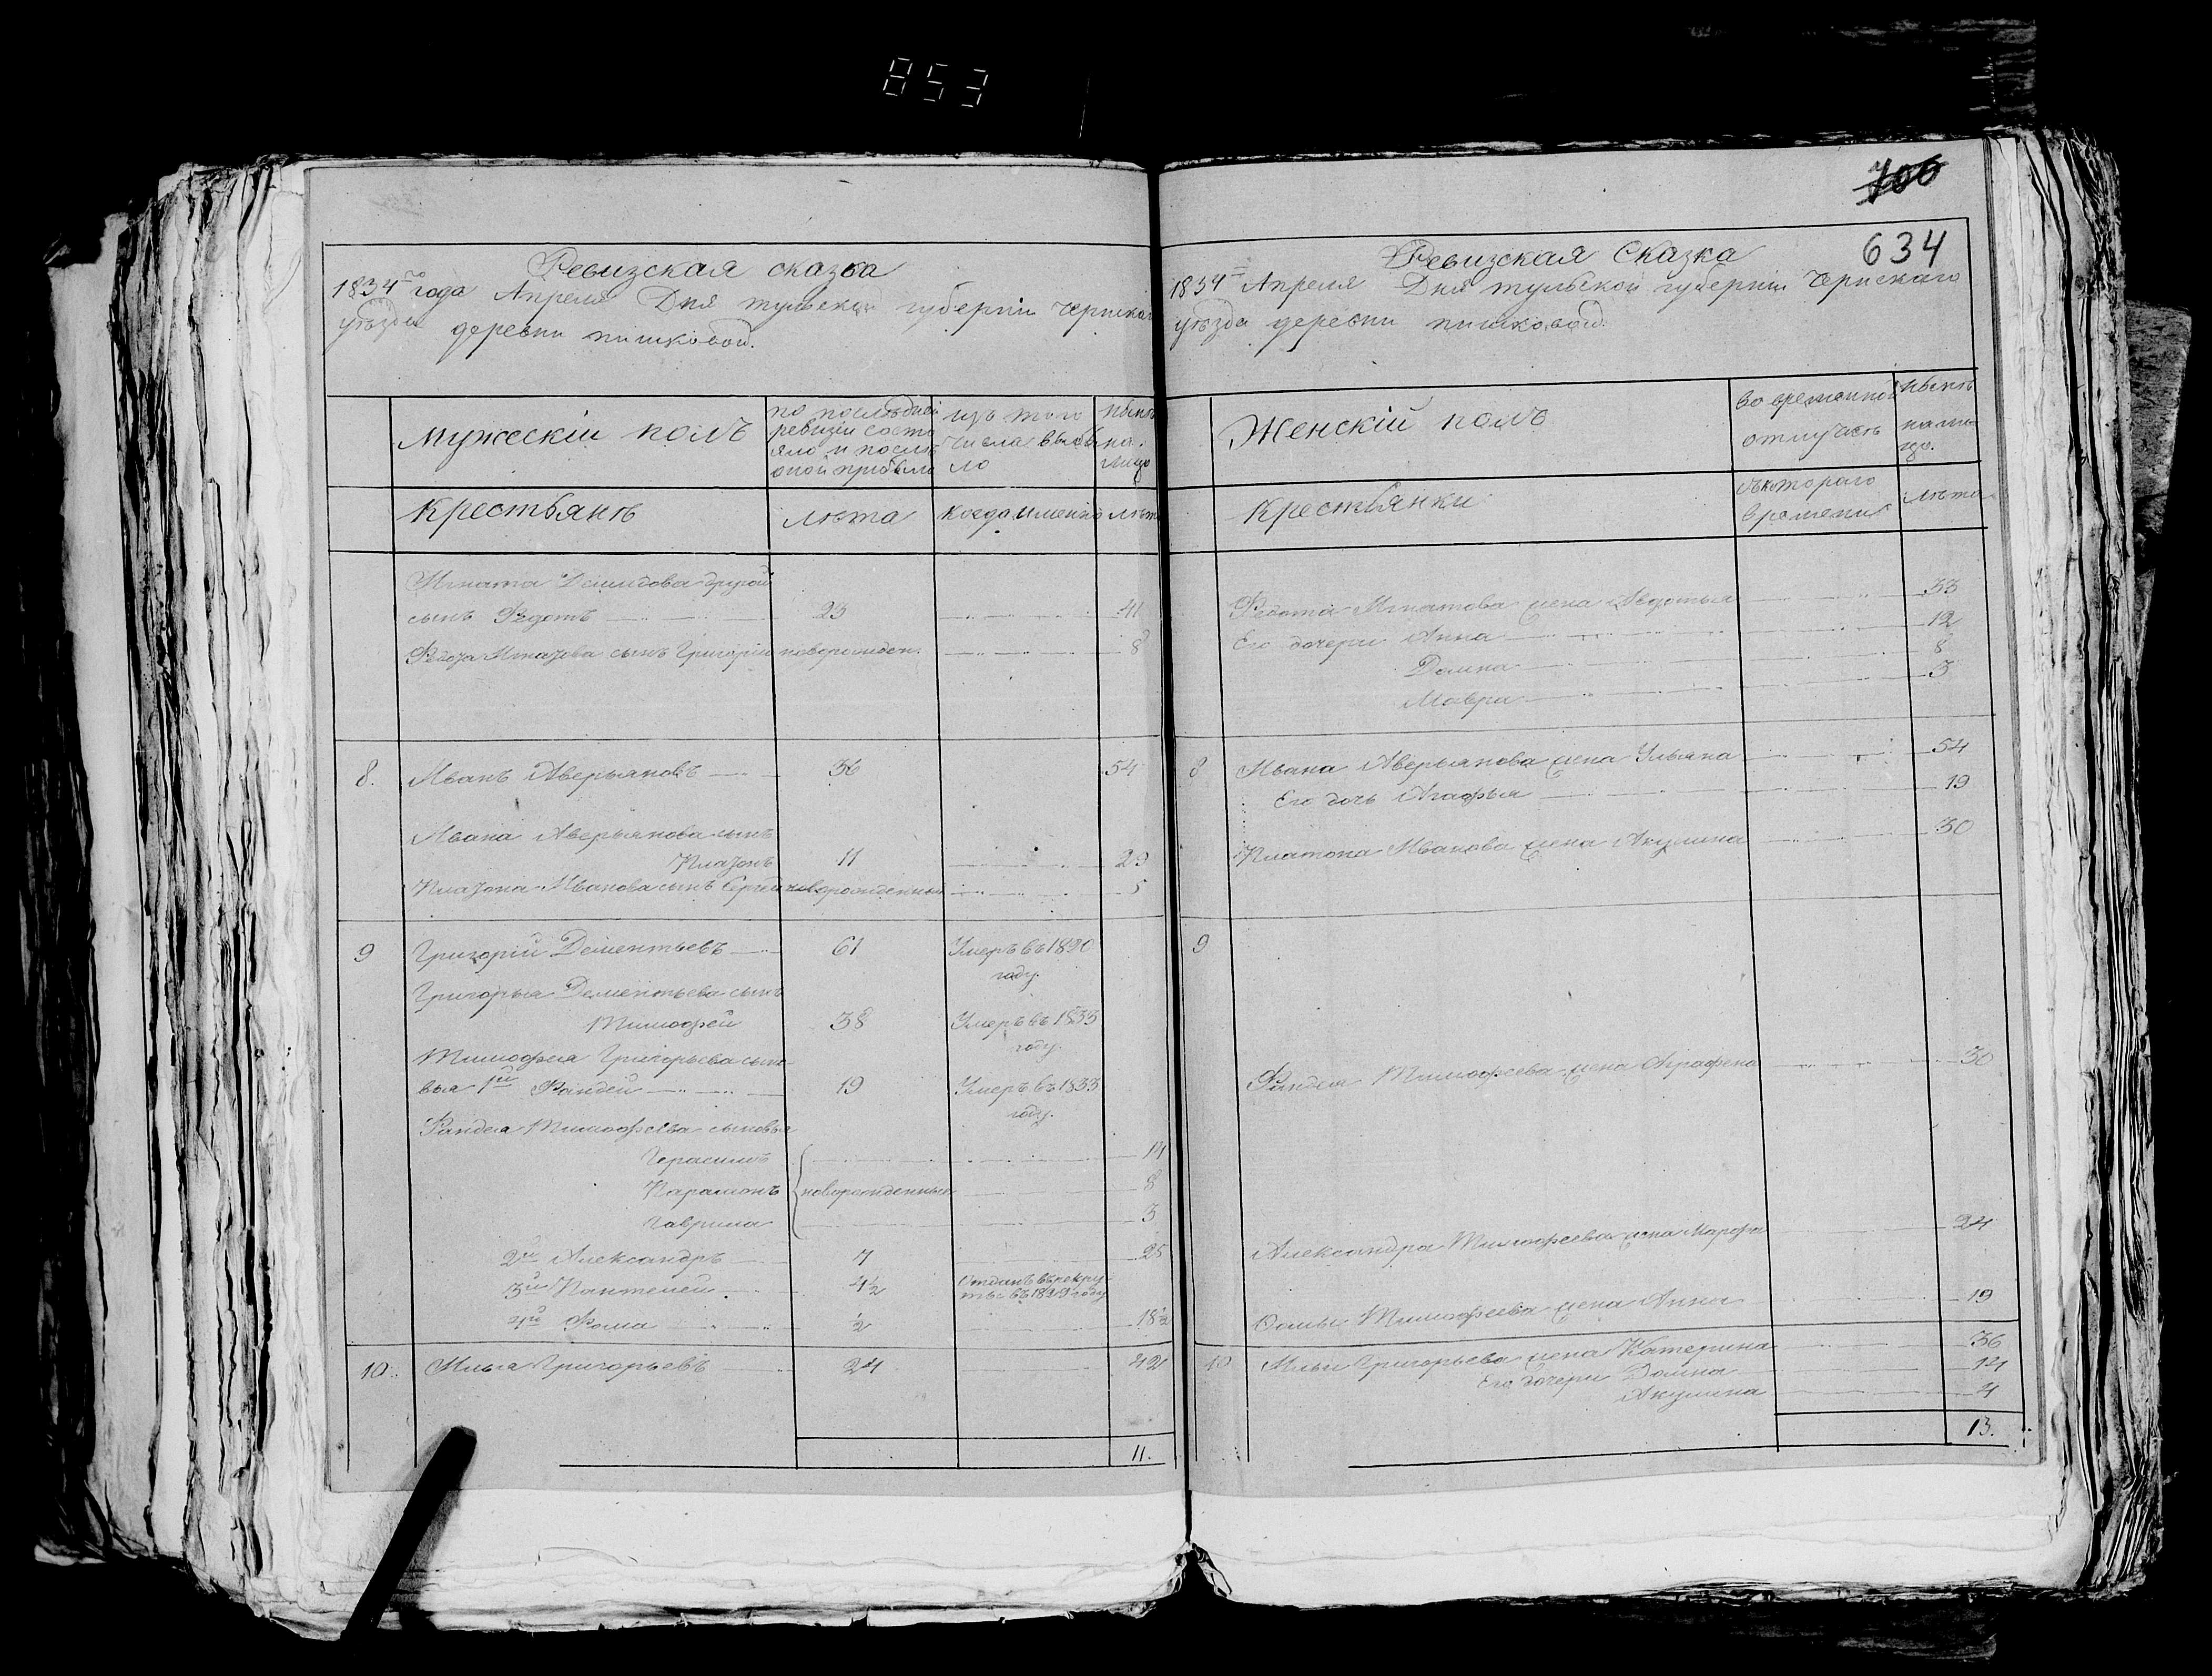 853
700
634
Ревизская сказка
1834го года Апреля Дня тульской губернии Чернскаго
уѣзда деревни пишковой.
Мужескій полъ
по последней
ревизіи состо
яло и после
оной прибыло
изъ того
числа выбы
ло
нынѣ
на
лицо
Крестьянѣ
лѣта
когда именно
лѣта
Игната Демидова другой
сынъ Ѳедотъ 23 41
Ѳедота Игнатова сынъ Григорій новорожден. 8
8. Иванъ Аверьяновъ 36 54
Ивана Аверьянова сынъ
Платонъ 11 29
Платона Иванова сынъ Сергей новорожденный 5
9 Григорій Дементьевъ 61 Умеръ въ 1830
году.
Григорья Дементьева сынъ
Тимофей 38 Умеръ въ 1833
году.
Тимофея Григорьева сыно
вья 1й Фандей 19 Умеръ въ 1833
году.
Фандея Тимофеева сыновья
Герасимъ 14
Парамонъ новорожденныя 8
Гаврила 3
2й Александръ 7 25
3й Пантелей 4½ Отданъ въ рекру
ты въ 1829 году
4й Фома ½ 18½
10. Илья Григорьевъ 24 42
11.
Ревизская Сказка
1834 Апреля Дня тульской губерніи Чернскаго
уѣзда деревни пишковой.
Женскій полъ
во временной
отлучкѣ
нынѣ
на ли
цо.
Крестьянки
съ котораго
времени
лѣта
Ѳедота Игнатова жена Авдотья 33
Его дочери Анна 12
Домна 8
Мавра 3
8 Ивана Аверьянова жена Ульяна 54
Его дочь Агафья 19
Платона Иванова жена Акулина 30
9
Фандея Тимофеева жена Аграфена 30
Александра Тимофеева жена Марфа 24
Фомы Тимофеева жена Анна 19
10 Ильи Григорьева жена Катерина 36
Его дочери Домна 14
Акулина 4
13.